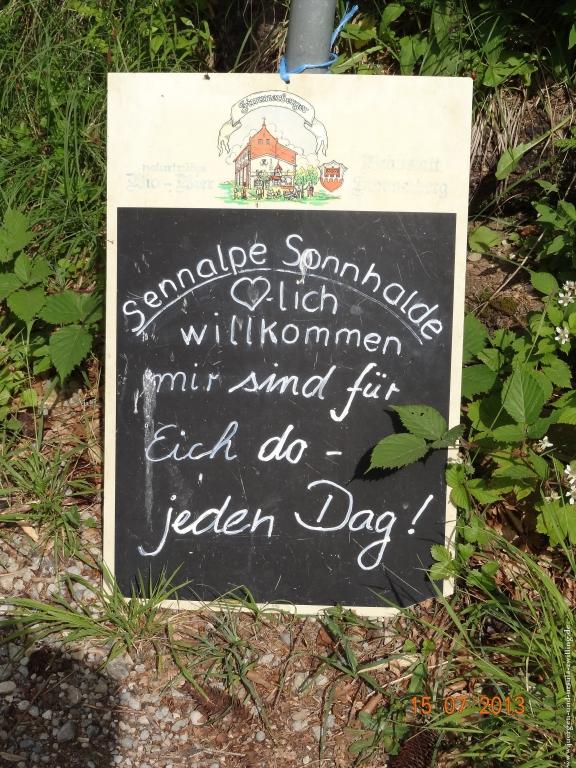 Sennalpe Sonnhalde
♡-lich
willkommen
mir sind für
Eich do -
jeden Dag!
15 07 2013